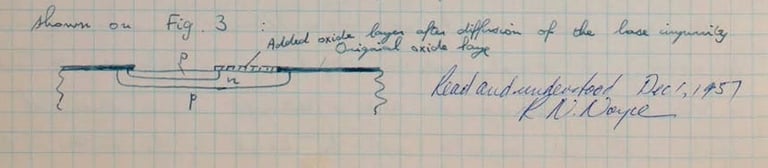 shown on Fig. 3 :
Added oxide layer after diffusion of the base impurity
Original oxide laye
p
n
p
Read and understood Dec 1, 1957
R N. Noyce